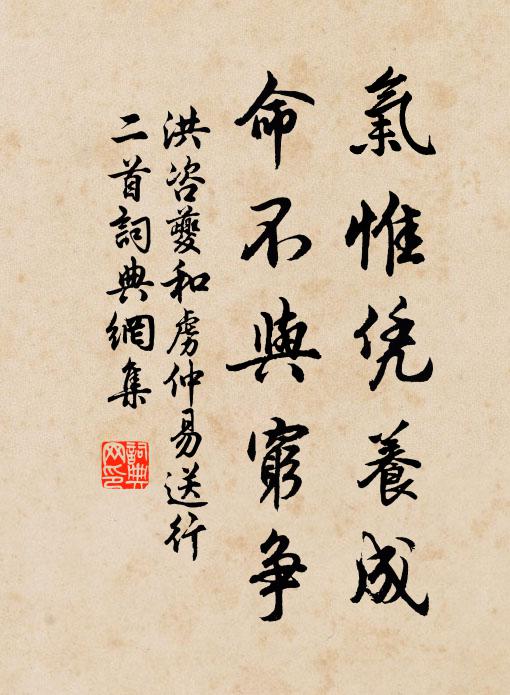 氣惟凭養成
命不與窮爭
洪咨夔和虜仲易送行
二首詞典網集
詞典网印